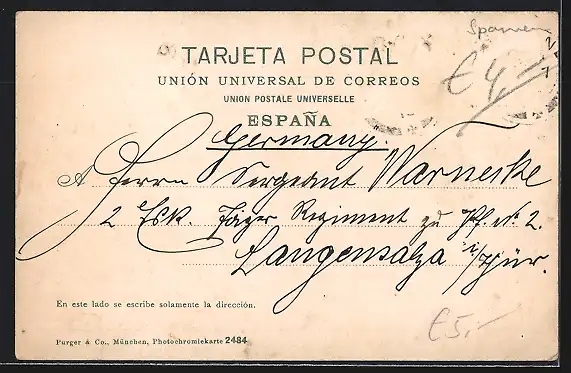 Spanien
€ 4,-
TARJETA POSTAL
UNIÓN UNIVERSAL DE CORREOS
UNION POSTALE UNIVERSELLE
ESPAÑA
Germany.
A Herrn Sergeant Warneske
2 Esk. Jäger Regiment zu Pf. No. 2.
Langensalza i/Thür.
En este lado se escribe solamente la dirección.
Purger & Co., München, Photochromiekarte 2484
€ 5,-